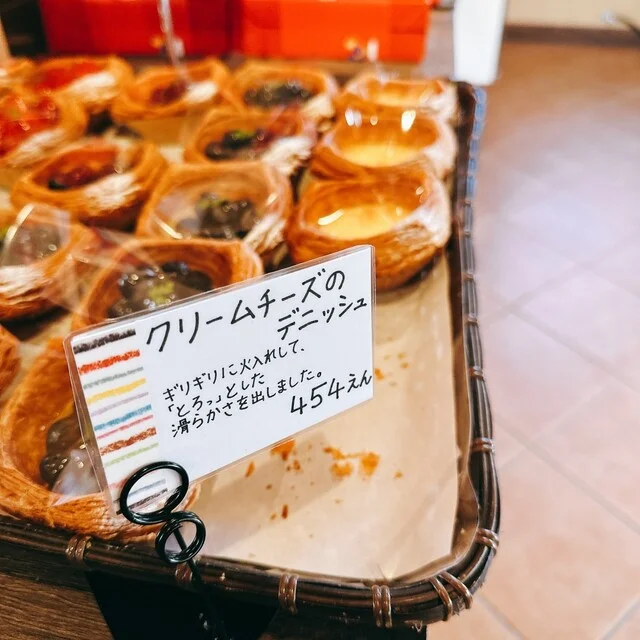 クリームチーズの
デニッシュ
ギリギリに火入れして、
「とろっ」とした
滑らかさを出しました。
454えん